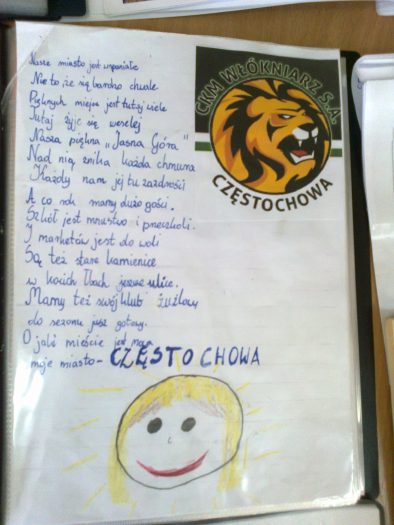 Nasze miasto jest wspaniałe
Nie to, że się bardzo chwale
Pięknych miejsc jest tutaj wiele
Tutaj żyje się weselej
Nasza piękna „Jasna Góra”
Nad nią znika każda chmura
Każdy nam jej tu zazdrości
A co rok mamy dużo gości.
Szkół jest mnustwo i
I marketów jest do woli
Są też stare kamienice
w kocich łbach ulice.
Mamy też swój klub żużlowy
do sezonu już gotowy.
O jakś mieście jest
moje miasto - CZĘSTOCHOWA
CKM WŁÓKNIARZ S.A.
CZĘSTOCHOWA